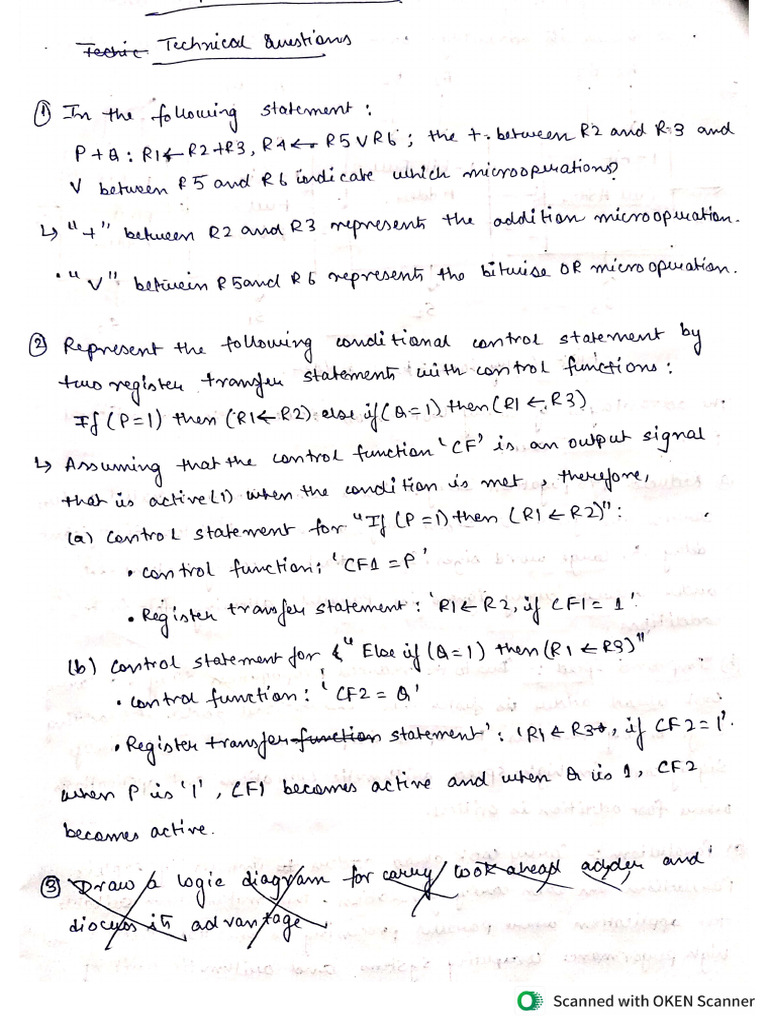 Technical Questions
① In the following statement :
P+Q : R1← R2+R3, R4← R5 V R6 ; the + between R2 and R3 and
V between R5 and R6 indicate which microoperations?
↳ "+" between R2 and R3 represents the addition microoperation.
• "V" between R5 and R6 represents the bitwise OR microoperation.
② Represent the following conditional control statement by
two register transfer statements with control functions :
If (P=1) then (R1← R2) else if (Q=1) then (R1 ← R3)
↳ Assuming that the control function 'CF' is an output signal
that is active (1) when the condition is met, therefore,
(a) control statement for "If (P=1) then (R1 ← R2)":
• control function: 'CF1 = P'
• Register transfer statement : 'R1← R2, if CF1 = 1'
(b) control statement for " Else if (Q=1) then (R1 ← R3)"
• control function : 'CF2 = Q'
• Register transfer function statement' : 'R1 ← R3, if CF2 = 1'.
when P is '1', CF1 becomes active and when Q is 1, CF2
becomes active.
③ Draw a logic diagram for carry look ahead adder and
discuss its advantage
Scanned with OKEN Scanner